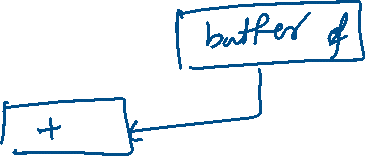 buffer of
+